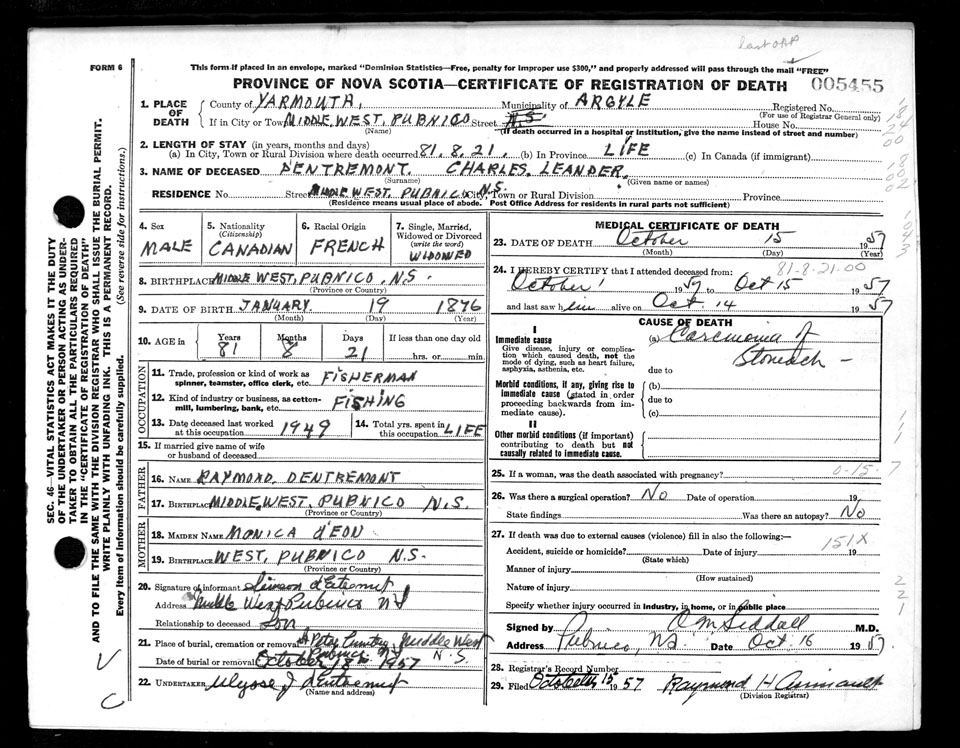 last opp
FORM 6
This form if placed in an envelope, marked "Dominion Statistics—Free, penalty for improper use $300," and properly addressed will pass through the mail "FREE"
PROVINCE OF NOVA SCOTIA—CERTIFICATE OF REGISTRATION OF DEATH 005455
1. PLACE OF DEATH County of YARMOUTH, Municipality of ARGYLE Registered No.
(For use of Registrar General only)
If in City or Town MIDDLE, WEST, PUBNICO Street N.S. House No.
(Name) (If death occurred in a hospital or institution, give the name instead of street and number)
2. LENGTH OF STAY (in years, months and days)
(a) In City, Town or Rural Division where death occurred 81. 8. 21. (b) In Province LIFE (c) In Canada (if immigrant)
3. NAME OF DECEASED D'ENTREMONT. CHARLES, LEANDER.
(Surname) (Given name or names)
RESIDENCE No. Street MIDDLE WEST, PUBNICO N.S. City, Town or Rural Division Province
(Residence means usual place of abode. Post Office Address for residents in rural parts not sufficient)
4. Sex MALE
5. Nationality (Citizenship) CANADIAN
6. Racial Origin FRENCH
7. Single, Married, Widowed or Divorced (write the word) WIDOWED
8. BIRTHPLACE MIDDLE WEST, PUBNICO, N.S.
(Province or Country)
9. DATE OF BIRTH JANUARY 19 1876
(Month) (Day) (Year)
10. AGE in Years Months Days If less than one day old
81 8 21 hrs. or min.
OCCUPATION
11. Trade, profession or kind of work as spinner, teamster, office clerk, etc. FISHERMAN
12. Kind of industry or business, as cotton-mill, lumbering, bank, etc. FISHING
13. Date deceased last worked at this occupation 1949
14. Total yrs. spent in this occupation LIFE
15. If married give name of wife or husband of deceased
FATHER
16. NAME RAYMOND DENTREMONT
17. BIRTHPLACE MIDDLE, WEST, PUBNICO N.S.
(Province or Country)
MOTHER
18. MAIDEN NAME MONICA d'EON
19. BIRTHPLACE WEST, PUBNICO N.S.
(Province or Country)
20. Signature of informant Simeon d'Entremont
Address Middle West Pubnico NS
Relationship to deceased Son
21. Place of burial, cremation or removal St Peter Cemetery, Middle West Pubnico. N.S.
Date of burial or removal October 18th 1957
22. UNDERTAKER Ulysse J d'Entremont
(Name and address)
MEDICAL CERTIFICATE OF DEATH
23. DATE OF DEATH October 15 1957
(Month) (Day) (Year)
81-8-21-00
24. I HEREBY CERTIFY that I attended deceased from:
October 1 1957 to Oct 15 1957
and last saw him alive on Oct 14 1957
CAUSE OF DEATH
I
Immediate cause
Give disease, injury or complication which caused death, not the mode of dying, such as heart failure, asphyxia, asthenia, etc.
(a) Carcinoma of Stomach —
due to
Morbid conditions, if any, giving rise to immediate cause (stated in order proceeding backwards from immediate cause).
(b)
due to
(c)
II
Other morbid conditions (if important) contributing to death but not causally related to immediate cause.
25. If a woman, was the death associated with pregnancy?
0-15-7
26. Was there a surgical operation? No Date of operation 19
State findings Was there an autopsy? No
27. If death was due to external causes (violence) fill in also the following:—
151X
Accident, suicide or homicide? Date of injury 19
(State which)
Manner of injury
(How sustained)
Nature of injury
Specify whether injury occurred in industry, in home, or in public place
Signed by O M Siddall M.D.
Address Pubnico, NS. Date Oct 16 1957
28. Registrar's Record Number
29. Filed October 15 1957 Raymond H Amirault
(Division Registrar)
SEC. 46—VITAL STATISTICS ACT MAKES IT THE DUTY
OF THE UNDERTAKER OR PERSON ACTING AS UNDER-
TAKER TO OBTAIN ALL THE PARTICULARS REQUIRED
IN THE "CERTIFICATE OF REGISTRATION OF DEATH"
AND TO FILE THE SAME WITH THE DIVISION REGISTRAR WHO SHALL ISSUE THE BURIAL PERMIT.
WRITE PLAINLY WITH UNFADING INK. THIS IS A PERMANENT RECORD.
Every item of information should be carefully supplied. (See reverse side for instructions.)